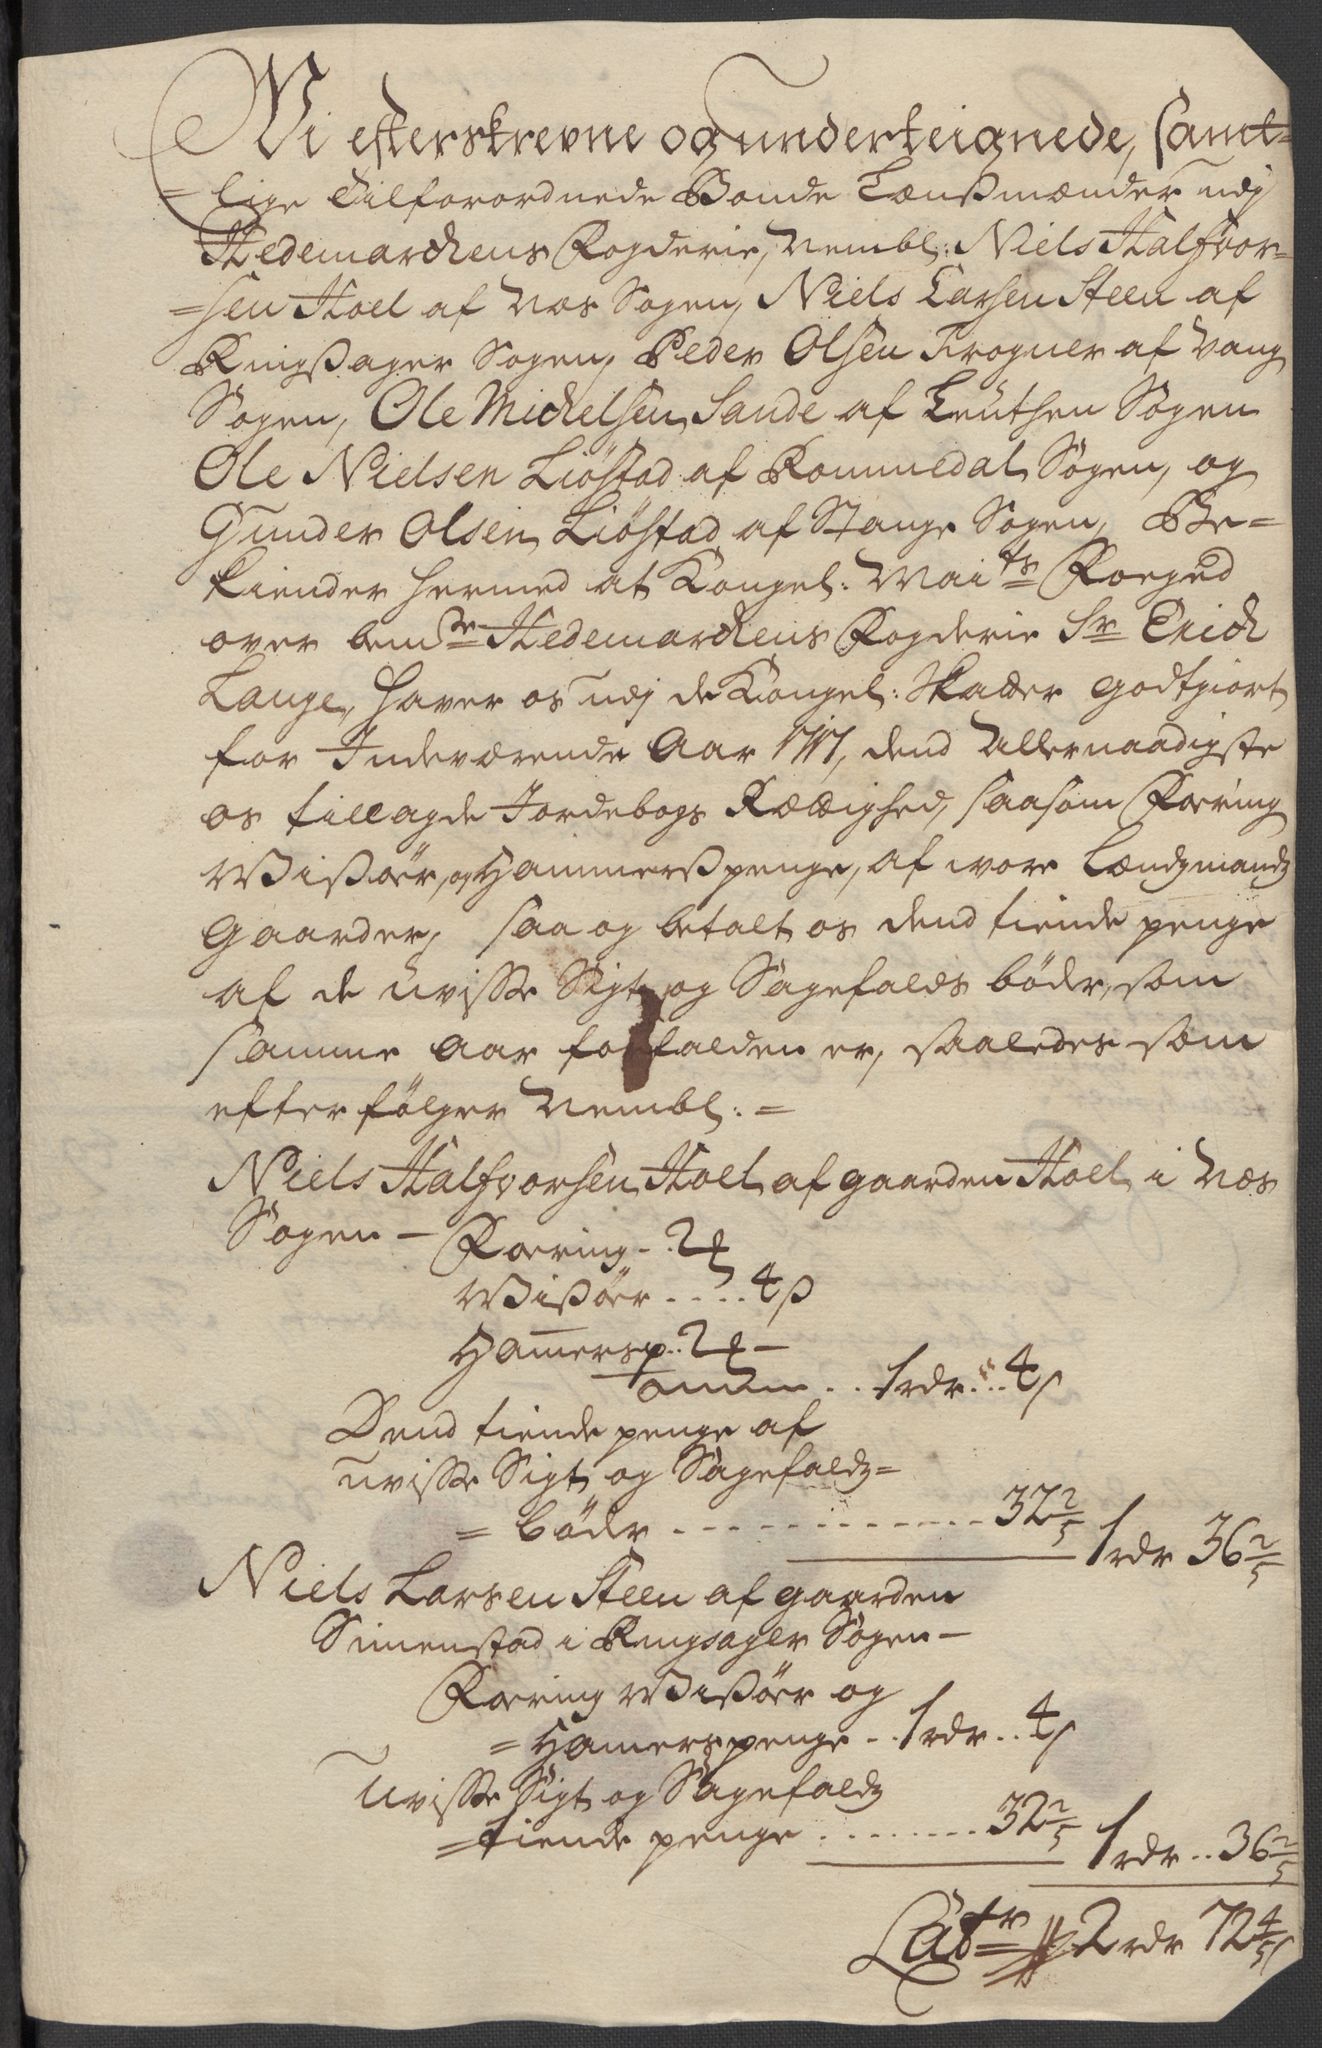 Vi efterskrevne og underteignede, samt=
=lige Tilforordnede Bonde Lænßmænder udj
Hedemarchens Fogderie, Nembl: Niels Halfvor=
=sen Hoel af Nes Sogen, Niels Larsen Steen af
Ringßager Sogen, Peder Olsen Frogner af Vang
Sogen, Ole Michelsen Sande af Leuthen Sogen
Ole Nielsen Liøstad af Rommedal Sogen, og
Gunder Olsen Liøstad af Stange Sogen, Be=
kiender hermed at Kongel: Mai:ts Foegud
over bem:te Hedemarchens Fogderie Sr Erich
Lange, haver os udj de Kongel: Skatter godtgiort
for Indeværende Aar 1717, dend Allernaadigste
os tillagde Jordebogs Rættighed, saasom Foering
Wißøer, og Hammerßpenge, af wore Lændzmandz
Gaarder, saa og betalt os dend tiende penge
af de uvisse Sigt og Sagefalds bøder, som
samme Aar forfalden er, saaledes som
efterfølger Nembl: =
Niels Halfvorsen Hoel af gaarden Hoel i Nes
Sogen — Foering .. 2
Wißøer .... 4 ß
Hamersp .. 2 —
.. 1 rdr .. 4 ß
Dend tiende penge af
uvisse Sigt og Sagefaldz=
=bøder ............ 32 2/5 1 rdr 36 2/5
Niels Larsen Steen af gaarden
Simenstad i Ringsager Sogen —
Foering Wißøer og
=Hamerspenge .. 1 rdr .. 4 ß
Uvisse Sigt og Sagefaldz
=tiende penge ........ 32 2/5 1 rdr .. 36 2/5
Lat:r 2 rdr 72 4/5 ß